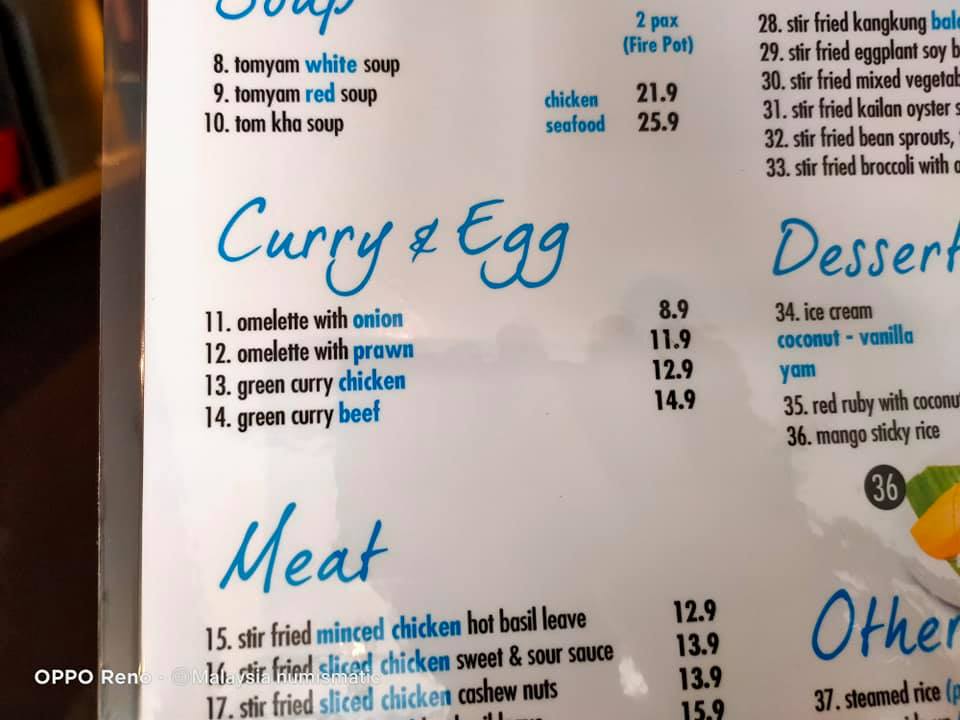 Soup
2 pax
(Fire Pot)
8. tomyam white soup
9. tomyam red soup
chicken 21.9
10. tom kha soup
seafood 25.9
Curry & Egg
11. omelette with onion 8.9
12. omelette with prawn 11.9
13. green curry chicken 12.9
14. green curry beef 14.9
Meat
15. stir fried minced chicken hot basil leave 12.9
16. stir fried sliced chicken sweet & sour sauce 13.9
17. stir fried sliced chicken cashew nuts 13.9
15.9
28. stir fried kangkung
29. stir fried eggplant soy
30. stir fried mixed
31. stir fried kailan oyster
32. stir fried bean sprouts,
33. stir fried broccoli with
Dessert
34. ice cream
coconut - vanilla
yam
35. red ruby with
36. mango sticky rice
36
Other
37. steamed rice
OPPO Reno · @Malaysia.numismatic